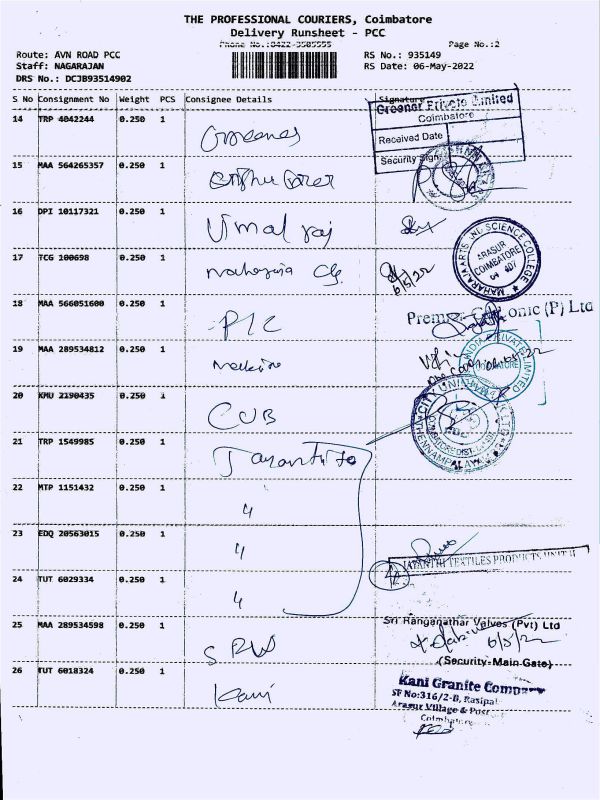 THE PROFESSIONAL COURIERS, Coimbatore
Delivery Runsheet - PCC
Phone No.:0422-3505555
Page No.:2
Route: AVN ROAD PCC
RS No.: 935149
Staff: NAGARAJAN
RS Date: 06-May-2022
DRS No.: DCJB93514902
S No Consignment No Weight PCS Consignee Details Signature
Greener Private Limited
Coimbatore
Received Date
Security Sign
14 TRP 4042244 0.250 1 Greenes
15 MAA 564265357 0.250 1
16 DPI 10117321 0.250 1 Vimal raj
17 TCG 100698 0.250 1 maharaja Clg. 6/5/22
MAHARAJA ARTS AND SCIENCE COLLEGE
ARASUR
COIMBATORE
641 407
18 MAA 566051600 0.250 1 PIC
Premier onic (P) Ltd
19 MAA 289534812 0.250 1
INDIA PRIVATE LIMITED
COIMBATORE
20 KMU 2190435 0.250 1 CUB
CITY UNION BANK LTD
CHENNAMPALAYAM
21 TRP 1549985 0.250 1 Jayanthi tex
22 MTP 1151432 0.250 1 "
23 EDQ 20563015 0.250 1 "
JAYANTHI TEXTILES PRODUCTS UNIT II
24 TUT 6029334 0.250 1 "
4
25 MAA 289534598 0.250 1 SRV
Sri Ranganathar Valves (Pvt) Ltd
6/5/22
(Security-Main Gate)
26 TUT 6018324 0.250 1 kani
Kani Granite Company
SF No:316/2-B, Rasipal
Arasur Village & Post
Coimbatore